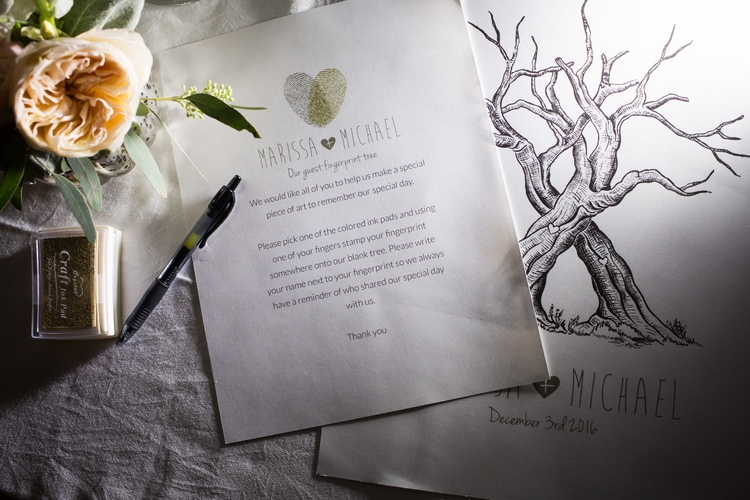 MARISSA + MICHAEL
Our guest fingerprint tree
We would like all of you to help us make a special
piece of art to remember our special day.
Please pick one of the colored ink pads and using
one of your fingers stamp your fingerprint
somewhere onto our blank tree. Please write
your name next to your fingerprint so we always
have a reminder of who shared our special day
with us.
Thank you
Craft Ink Pad
SA + MICHAEL
December 3rd 2016